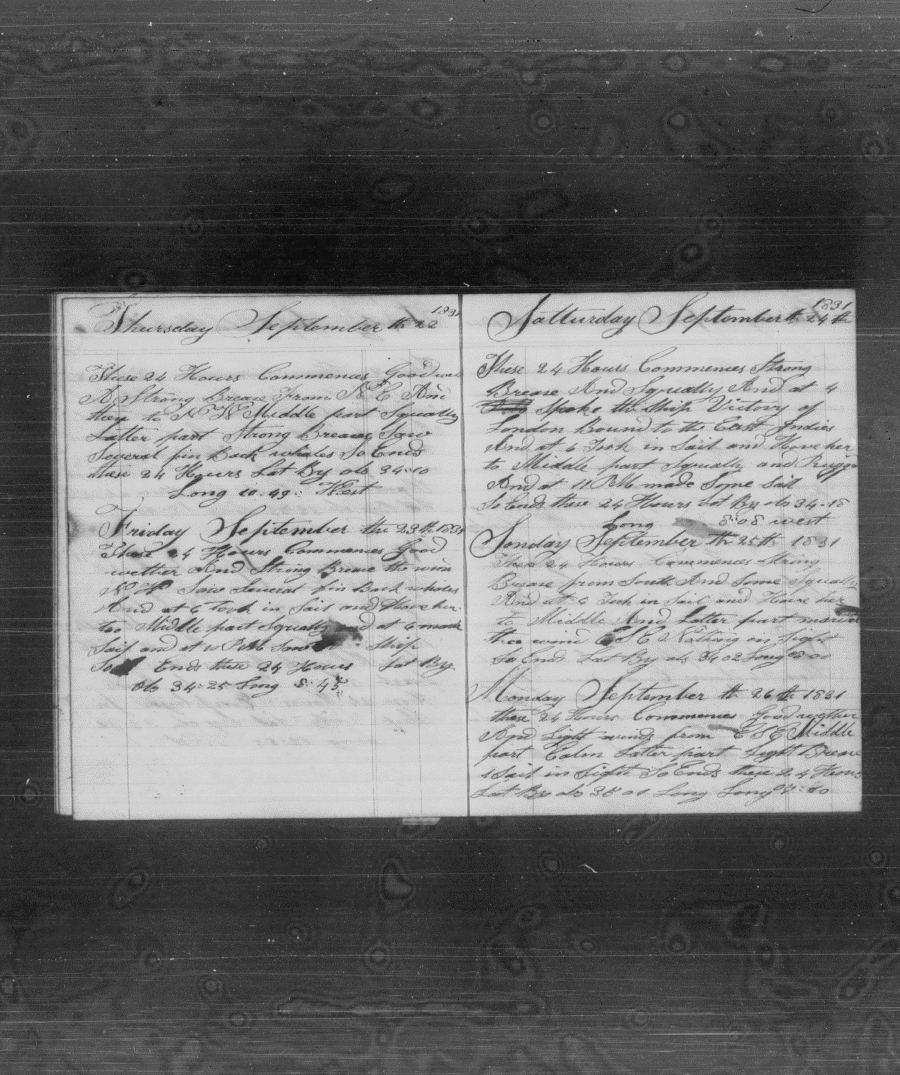 Thursday September th 22 1831
These 24 Hours Commences Good we
A Strong Brease From N E And
then to N W Middle part Squally
Latter part Strong Breause Saw
Several fin Back whales So Ends
these 24 Hours Lat By obs 34-10
Long 10:49: West
Friday September th 23th 1831
These 24 Hours Commences Good
wether And Strong Brease the win
Saw Several fin Back whales
And at 6 took in Sail and Have her
too Middle part Squally and at 6 made
Sail and at PM Saw Ship
So Ends these 24 Hours Lat By
Obs 34:25 Long 8:45
Satturday September th 24th 1831
These 24 Hours Commences Strong
Brease And Squally And at 4
Spoke the Ship Victory of
London Bound to the East Indies
And at 6 Took in Sail and Have her
to Middle part Squally and Rugge
And at 11 P M made Some Sail
So Ends these 24 Hours Lat By obs 34-18
Long 8:08 west
Sonday September th 25th 1831
These 24 Hours Commences Strong
Brease from South And Some Squalls
And at 6 Took in Sail and Have her
to Middle And Latter part
the wind E Nothing in Sight
So Ends Lat By obs 34 02 Long 8:00
Monday September th 26th 1831
these 24 Hours Commences Good weather
And Light winds from E S E Middle
part Calm Latter part Light Brease
1 Sail in Sight So Ends these 24 Hours
Lat By obs 35 01 Long Long :40